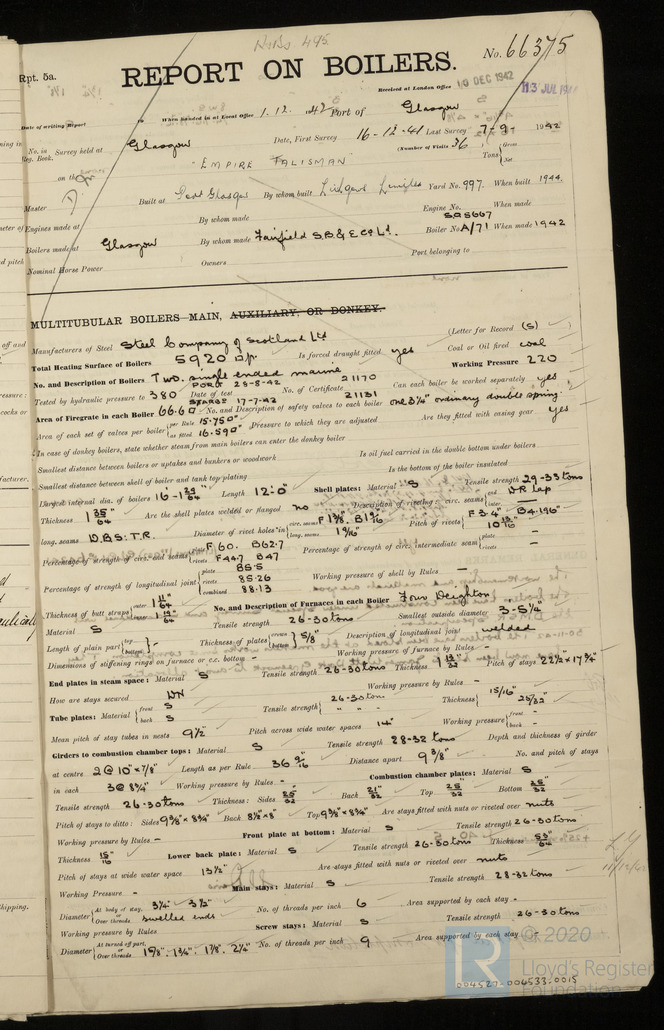 No No 495
Rpt. 5a.
REPORT ON BOILERS.
No. 66375
Received at London Office 10 DEC 1942
13 JUL 194
Date of writing Report When handed in at Local Office 1.12.1942 Port of Glasgow
No. in Reg. Book. Survey held at Glasgow Date, First Survey 16-12-41 Last Survey 7-9-1942
(Number of Visits 36) Gross Tons Net
on the "EMPIRE TALISMAN"
Master Built at Port Glasgow By whom built Lithgows Limited Yard No. 997. When built 1944.
Engines made at By whom made Engine No. When made
Boilers made at Glasgow By whom made Fairfield S.B. & E. Co Ld. Boiler No. SO 8667 A/71 When made 1942
Nominal Horse Power Owners Port belonging to
MULTITUBULAR BOILERS MAIN, AUXILIARY, OR DONKEY.
Manufacturers of Steel Steel Company of Scotland Ltd (Letter for Record (S) )
Total Heating Surface of Boilers 5920 Is forced draught fitted yes Coal or Oil fired coal
No. and Description of Boilers Two single ended marine Working Pressure 220
Tested by hydraulic pressure to 380 Date of test PORT 28-8-42 STARBD 17-7-42 No. of Certificate 21170 21131 Can each boiler be worked separately yes
Area of Firegrate in each Boiler 66.6 No. and Description of safety valves to each boiler one 3¼" ordinary double spring.
Area of each set of valves per boiler per Rule 15.750" as fitted 16.590" Pressure to which they are adjusted Are they fitted with easing gear yes
In case of donkey boilers, state whether steam from main boilers can enter the donkey boiler
Smallest distance between boilers or uptakes and bunkers or woodwork Is oil fuel carried in the double bottom under boilers
Smallest distance between shell of boiler and tank top plating Is the bottom of the boiler insulated
Largest internal dia. of boilers 16-1 35/64 Length 12'-0" Shell plates: Material S Tensile strength 29-33 tons
Thickness 1 35/64" Are the shell plates welded or flanged no Description of riveting: circ. seams DR Lap
long. seams D.B.S: T.R. Diameter of rivet holes in circ. seams F 1⅝" B 1 9/16" long. seams 1 9/16" Pitch of rivets F 3.4" B 4.196" 10 15/16"
Percentage of strength of circ. end seams plate F 60. B 62.7 rivets F 44.7 B 47 Percentage of strength of circ. intermediate seam plate – rivets –
Percentage of strength of longitudinal joint plate 85.5 rivets 85.26 combined 88.13 Working pressure of shell by Rules –
Thickness of butt straps outer 1 11/64" inner 1 19/64" No. and Description of Furnaces in each Boiler Four Deighton
Material S Tensile strength 26-30 tons Smallest outside diameter 3-5¼"
Length of plain part top – bottom – Thickness of plates crown bottom 5/8" Description of longitudinal joint welded
Dimensions of stiffening rings on furnace or c.c. bottom – Working pressure of furnace by Rules –
End plates in steam space: Material S Tensile strength 26-30 tons Thickness 1 13/32" Pitch of stays 22½" x 17¾"
How are stays secured DN Working pressure by Rules –
Tube plates: Material front S back S Tensile strength 26-30 tons " " " Thickness 15/16" 25/32"
Mean pitch of stay tubes in nests 9½" Pitch across wide water spaces 14" Working pressure front – back –
Girders to combustion chamber tops: Material S Tensile strength 28-32 tons Depth and thickness of girder
at centre 2 @ 10" x ⅞" Length as per Rule 36 9/16" Distance apart 9⅜" No. and pitch of stays
in each 3 @ 8¾" Working pressure by Rules – Combustion chamber plates: Material S
Tensile strength 26-30 tons Thickness: Sides 25/32" Back 21/32" Top 25/32" Bottom 25/32"
Pitch of stays to ditto: Sides 9⅜" x 8¾" Back 8⅝" x 8" Top 9⅜" x 8¾" Are stays fitted with nuts or riveted over nuts
Working pressure by Rules – Front plate at bottom: Material S Tensile strength 26-30 tons
Thickness 15/16" Lower back plate: Material S Tensile strength 26-30 tons Thickness
Pitch of stays at wide water space 13½" Are stays fitted with nuts or riveted over nuts
Working Pressure – Main stays: Material S Tensile strength 28-32 tons
Diameter At body of stay, or Over threads 3¾" 3½" swelled ends No. of threads per inch 6 Area supported by each stay –
Working pressure by Rules Screw stays: Material S Tensile strength 26-30 tons
Diameter At turned off part, or Over threads 1⅝". 1¾" 1⅞". 2¼" No. of threads per inch 9 Area supported by each stay –
© 2020
LR
Lloyd's Register
Foundation
004520-004533-0015